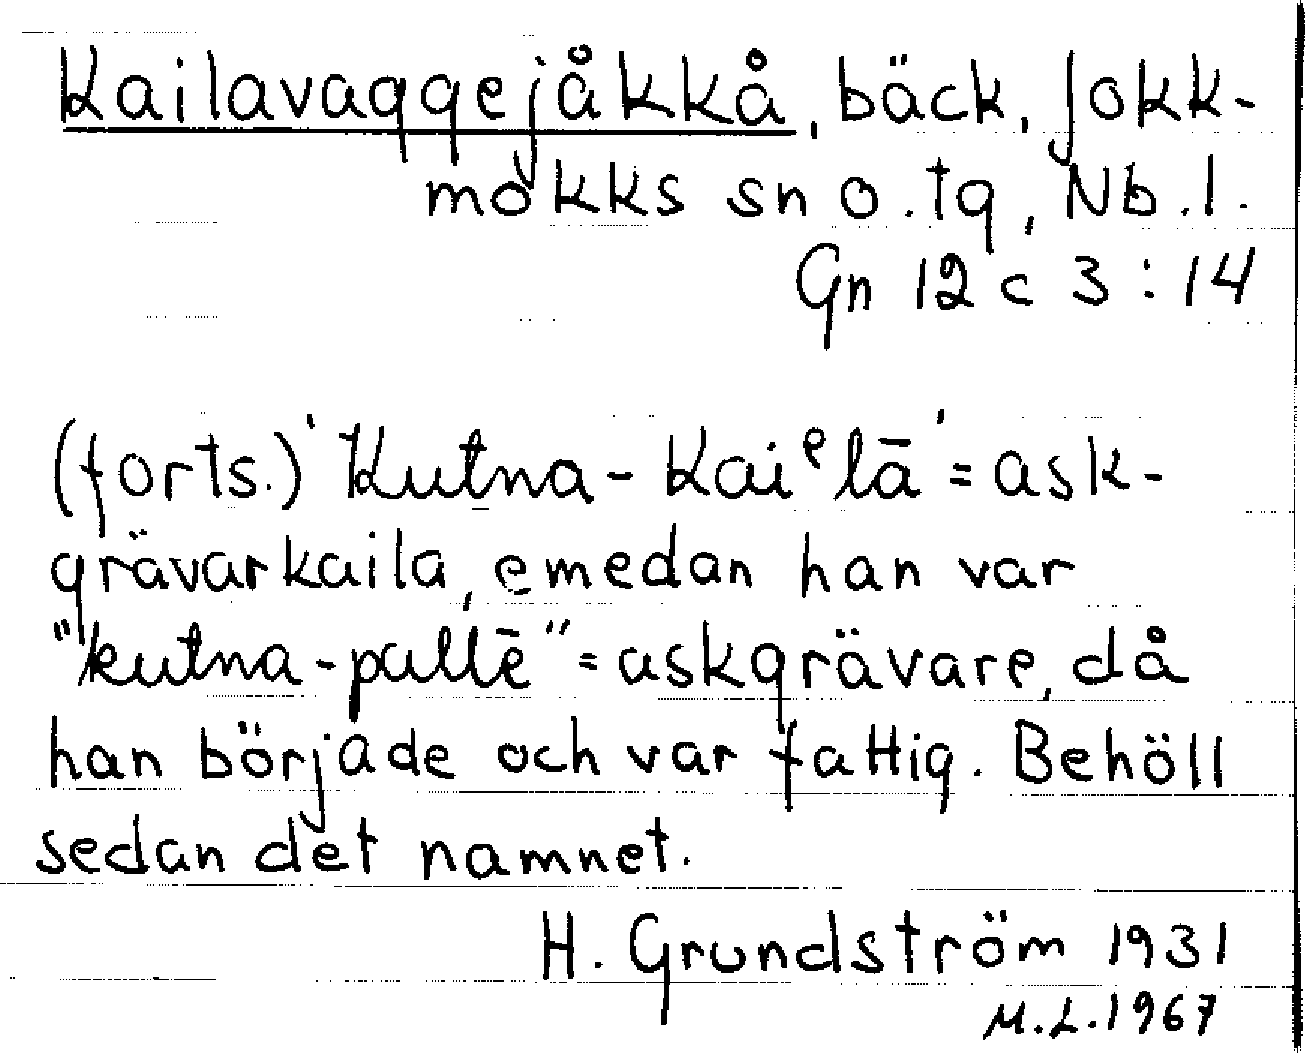 Kailavaggejåkkå, bäck, Jokk-
mokks sn o. tg, Nb. l.
Gn 12 c 3 : 14
(forts.) 'Kutna-Kaiᵉlā' = ask-
grävarkaila, emedan han var
"kutna-pullē" = askgrävare, då
han började och var fattig. Behöll
sedan det namnet.
H. Grundström 1931
M.L. 1967